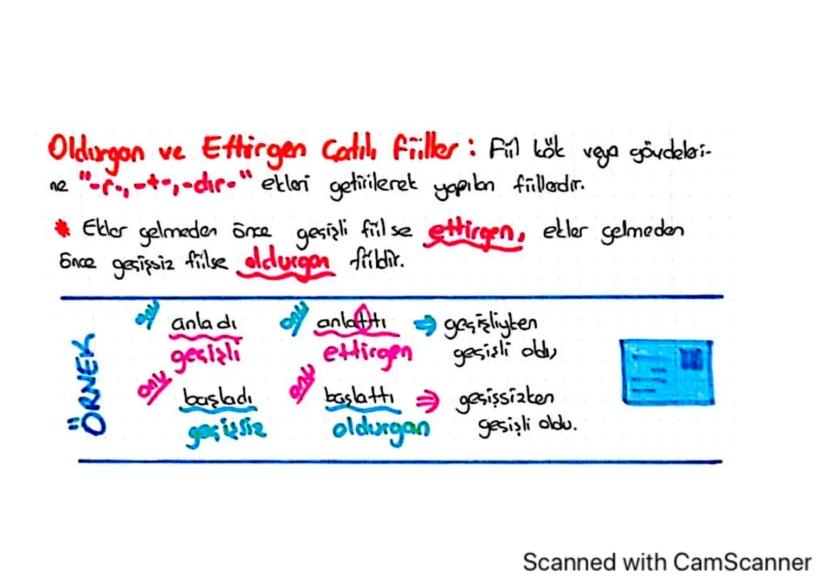 Oldurgan ve Ettirgen Çatılı Fiiller : Fiil kök veya gövdeleri-
ne "-r-, -t-, -dır-" ekleri getirilerek yapılan fiillerdir.
* Ekler gelmeden önce geçişli fiilse ettirgen, ekler gelmeden
önce geçişsiz fiilse oldurgan fiildir.
ÖRNEK
onu anladı onu anlattı ⇒ geçişliyken
geçişli ettirgen geçişli oldu
onu başladı onu başlattı ⇒ geçişsizken
geçişsiz oldurgan geçişli oldu.
Scanned with CamScanner